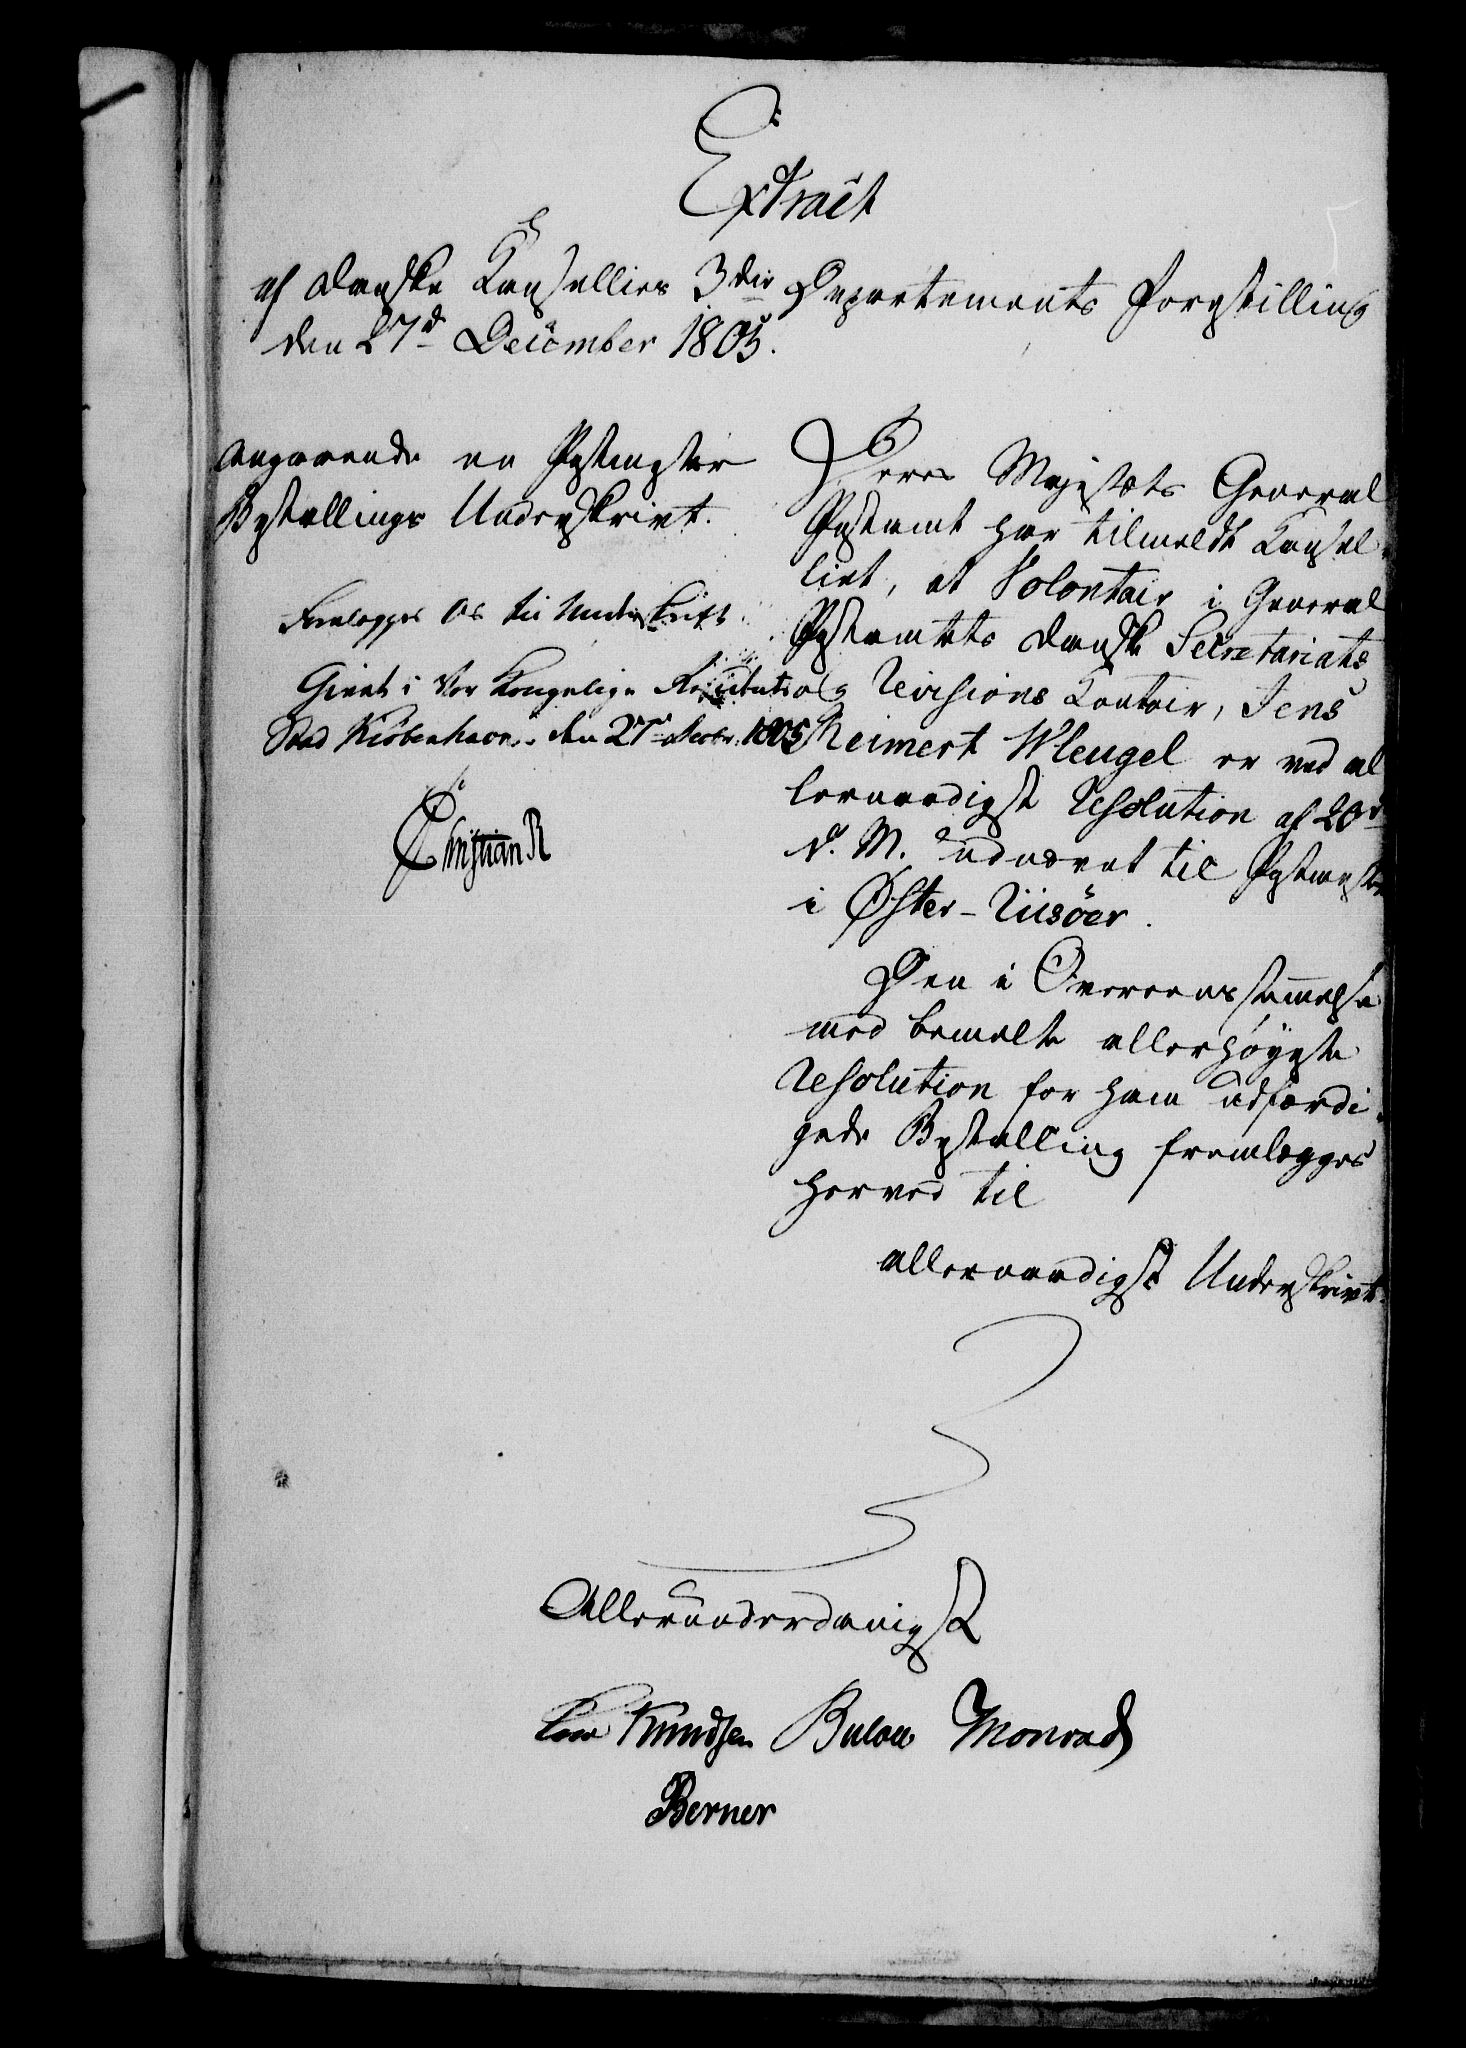 Extract
af Danske Kanselliets 3die Departements Forestilling
den 27d December 1805.
Angaaende en Postmester
Bestallings Underskrivt.
Forelægges Os til Underskrift
Givet i Vor Kongelige Residents
Stad Kiöbenhavn, den 27de Decbr 1805
Christian R
Deres Majestæts General
Postamt har tilmeldt Kansel-
liet, at Volontair i General
Postamtets danske Secretariats
og Revisions Contoir, Jens
Reimert Wleugel er ved al
lernaadigst Resolution af 20d
d. M. udnævnt til Postmester
i Øster-Riisöer.
Den i Overeensstemmelse
med bemelte allerhöyeste
Resolution for ham udfærdi-
gede Bestalling fremlægges
herved til
allernaadigst Underskrivt.
Allerunderdanigst
Knudsen Bülow Monrad
Berner